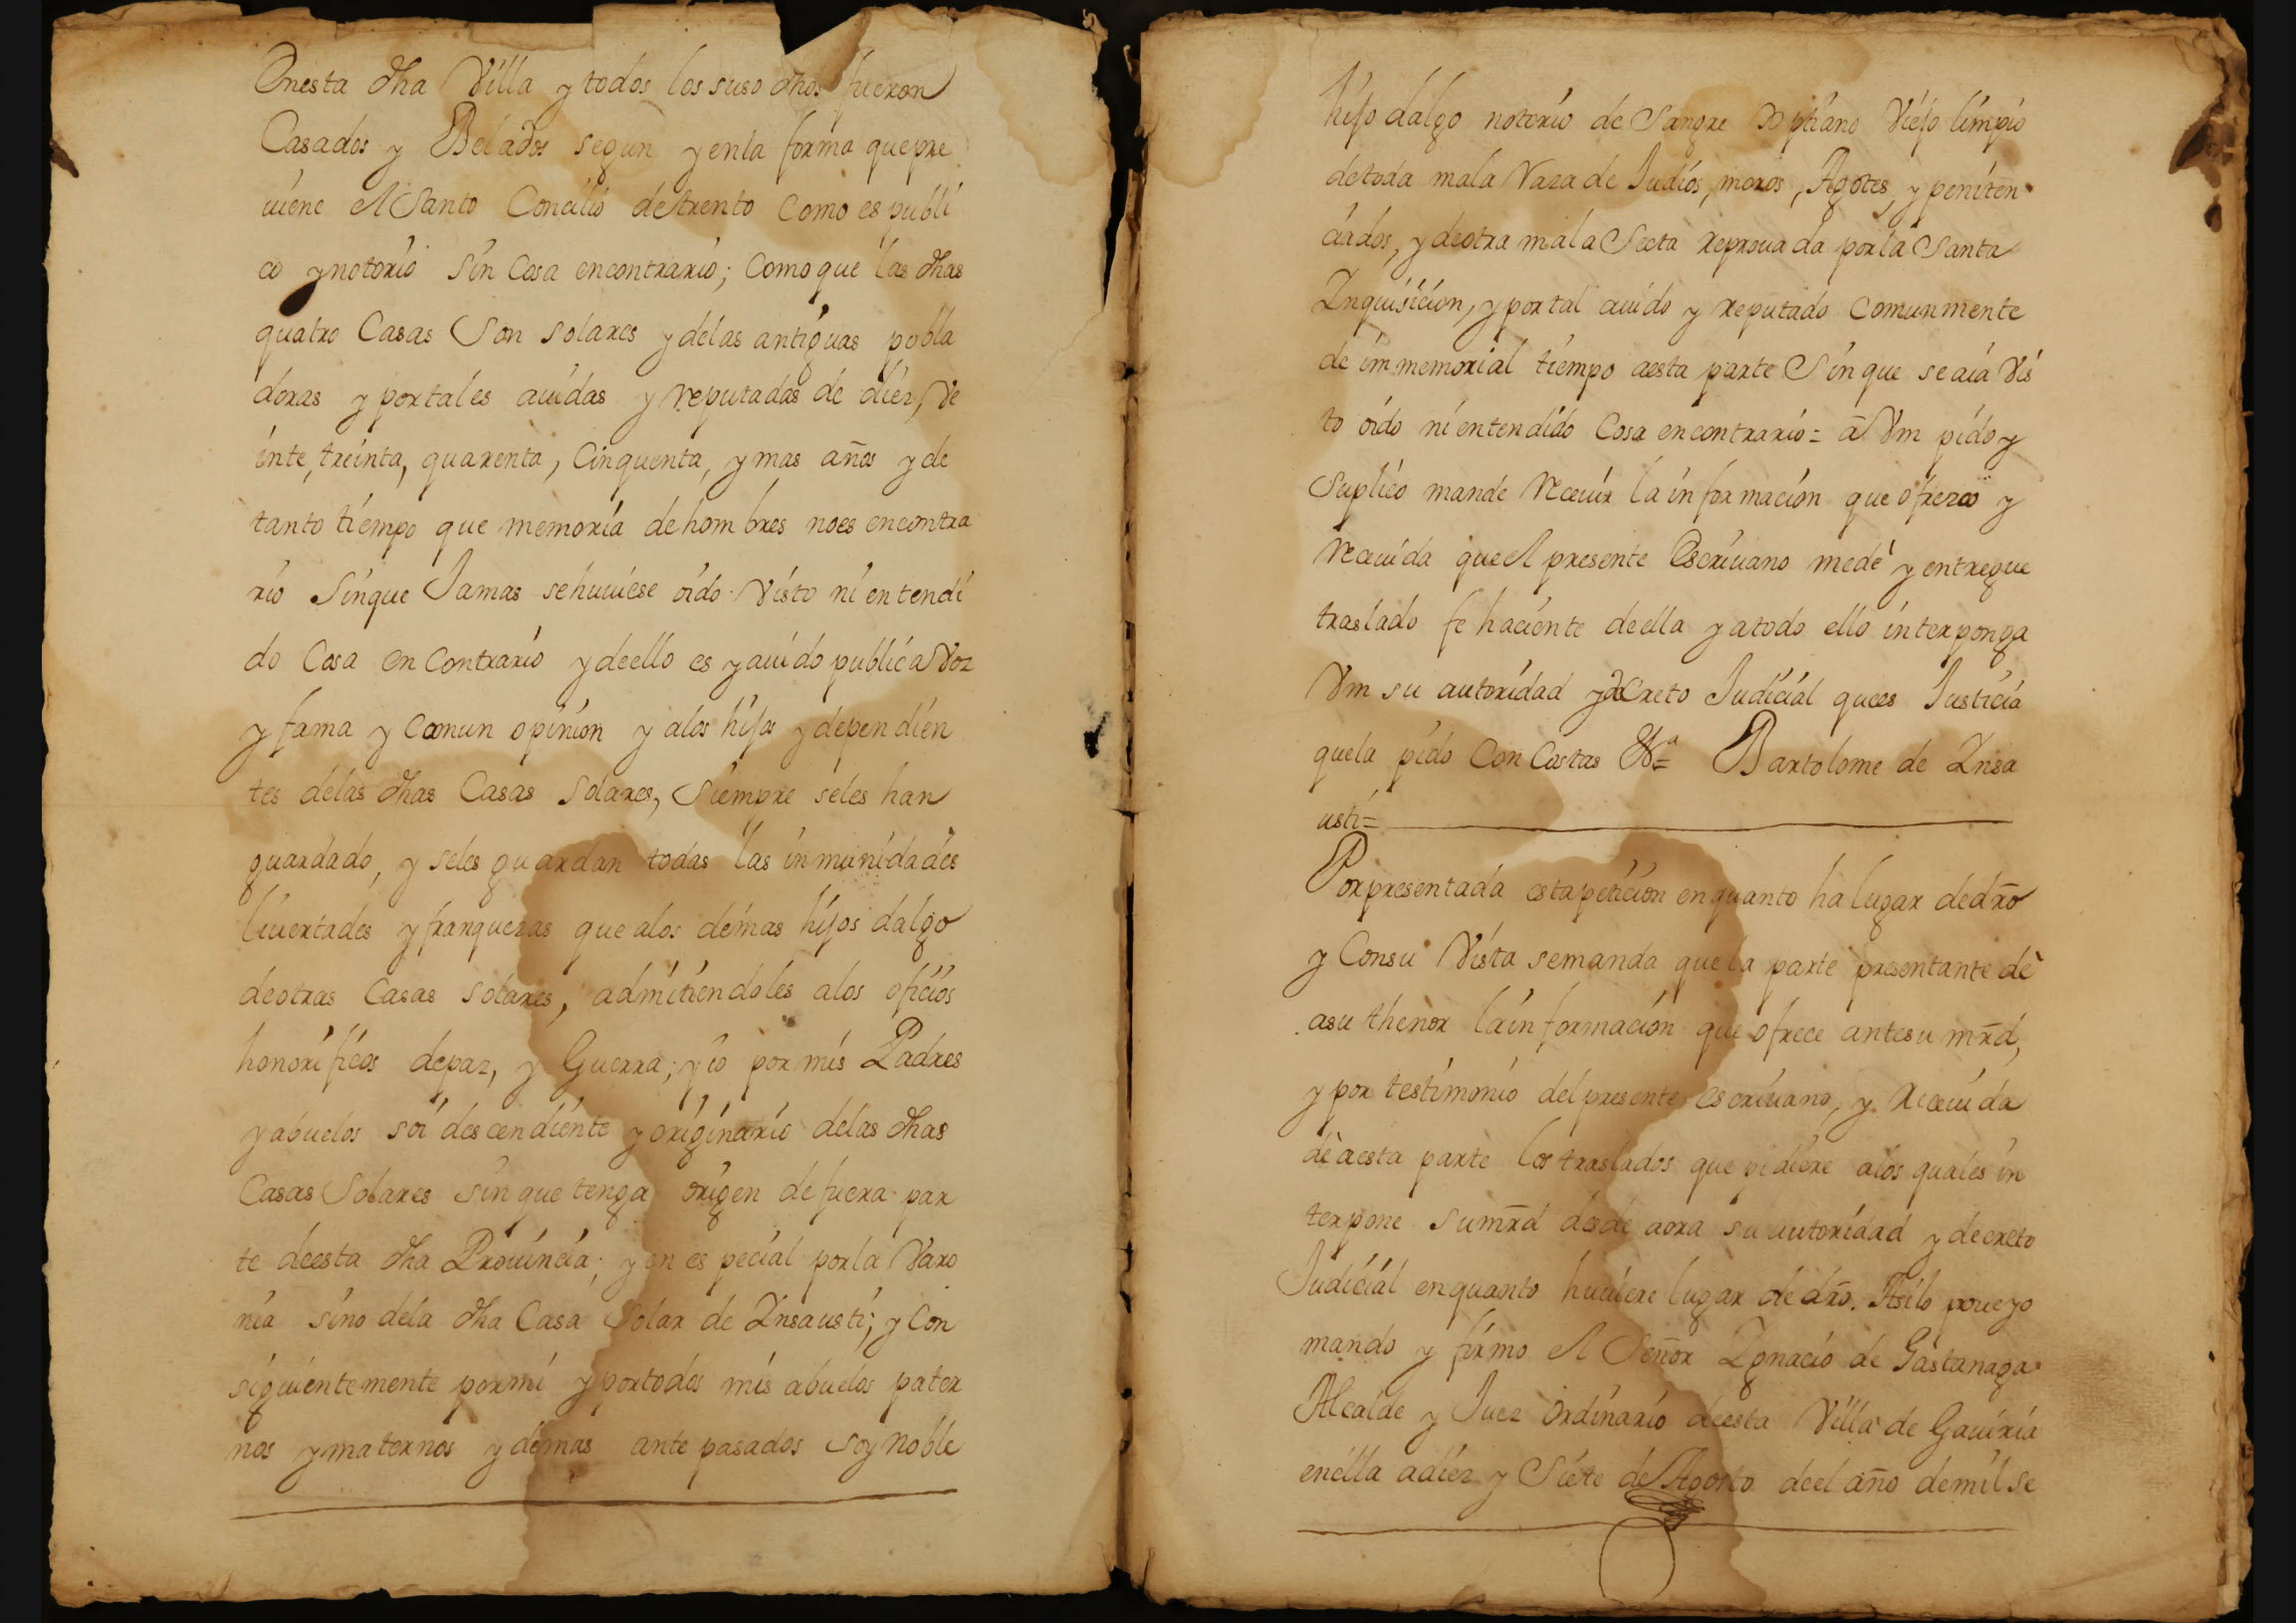 Enesta dha Villa y todos los suso dhos fueron
Casados y Belados segun y enla forma quepre
uiene el Santo Concilio detrento como es publi
co ynotorio sin Cosa encontrario; como que las dhas
quatro Casas Son solares y delas antiguas pobla
doras y portales auidas y reputadas de diez, Ve
inte, treinta, quarenta, Cinquenta, y mas años y de
tanto tiempo que memoria dehombres noes encontra
rio sinque Jamas sehuuiese oido Visto ni entendi
do Cosa en Contrario ydeello es y auido publica Voz
y fama y comun opinion y alos hijos y dependien
tes delas dhas Casas solares, siempre seles han
guardado, y seles guardan todas las inmunidades
liuertades y franquezas que alos demas hijos dalgo
deotras Casas solares, admitiendoles alos oficios
honorificos depaz, y Guerra; yio por mis Padres
yabuelos soi descendiente y originario delas dhas
Casas Solares sin que tenga origen defuera par
te deesta dha Prouincia; y en especial porla Varo
nia sino dela dha Casa Solar de Insausti; y Con
siguientemente pormi yportodos mis abuelos pater
nos ymaternos y demas ante pasados soy noble
hijo dalgo notorio de Sangre Xptiano Viejo limpio
detoda mala Raza de Judios, moros, Agotes, y peniten
ciados, y deotra mala Secta reprouada porla Santa
Inquisicion, y portal auido y reputado comunmente
de inmemorial tiempo aesta parte Sinque seaia Vis
to oido nientendido Cosa encontrario = a Vm pido y
Suplico mande Receuir la informacion que ofrezco y
Receuida que el presente Escriuano medè y entregue
traslado fe haciente deella yatodo ello interponga
Vm su autoridad y decreto Judicial quees Justicia
quela pido Con Costas &ª= Bartolome de Insa
usti=
Porpresentada estapeticion enquanto ha lugar dedr̃o
y Consu Vista semanda quela parte presentante dè
asu thenor lainformacion que ofrece antesu mr̃d,
y por testimonio delpresente escriuano, y Receuida
dè aesta parte los traslados que pidiere alos quales in
terpone sumr̃d desde aora su autoridad y decreto
Judicial enquanto huuiere lugar de dr̃o. Asilo proueyo
mando y firmo el Señor Ignacio de Gastanaga
Alcalde y Juez ordinario deesta Villa de Gauiria
enella adiez y Siete de Agosto deel año demilse